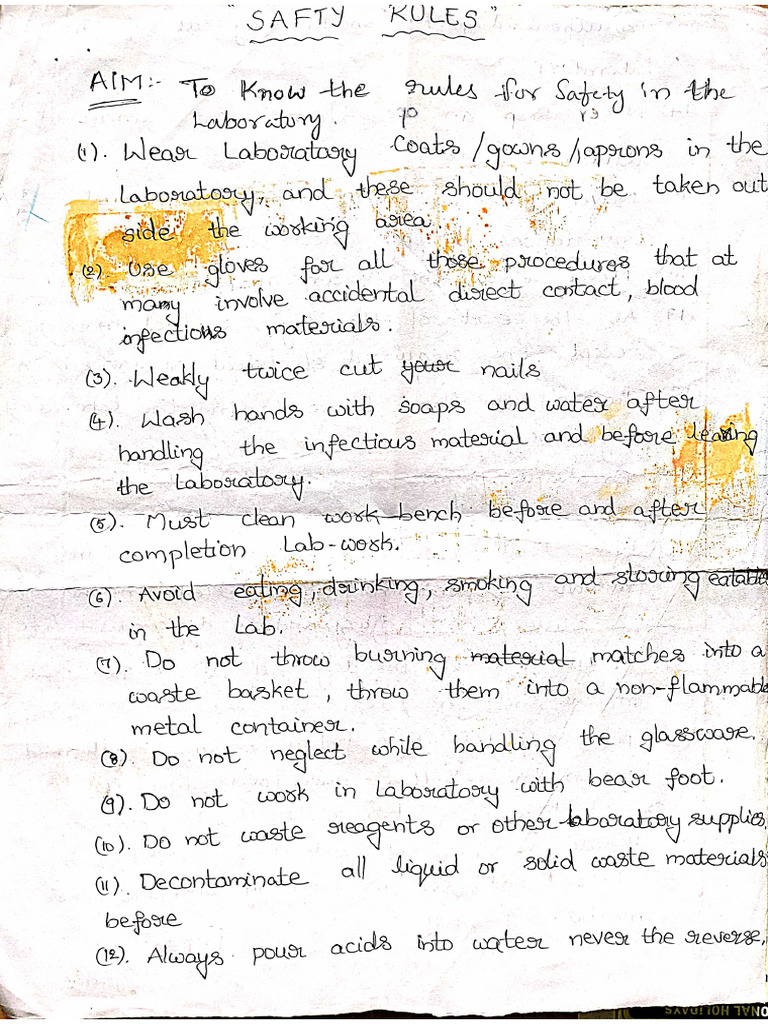 "SAFTY RULES"
AIM:- To Know the rules for Safety in the
Laboratory.
(1). Wear Laboratory Coats/gowns/aprons in the
Laboratory, and these should not be taken out
side the working area.
(2). Use gloves for all those procedures that at
many involve accidental direct contact, blood
infectious materials.
(3). Weakly twice cut your nails
(4). Wash hands with soaps and water after
handling the infectious material and before leaving
the Laboratory.
(5). Must clean work bench before and after
completion Lab-work.
(6). Avoid eating, drinking, smoking and storing eatable
in the Lab.
(7). Do not throw burning material matches into a
waste basket, throw them into a non-flammable
metal container.
(8). Do not neglect while handling the glassware.
(9). Do not work in Laboratory with bear foot.
(10). Do not waste reagents or other laboratory supplies
(11). Decontaminate all liquid or solid waste materials
before
(12). Always pour acids into water never the reverse.
ONAL HOLIDAYS